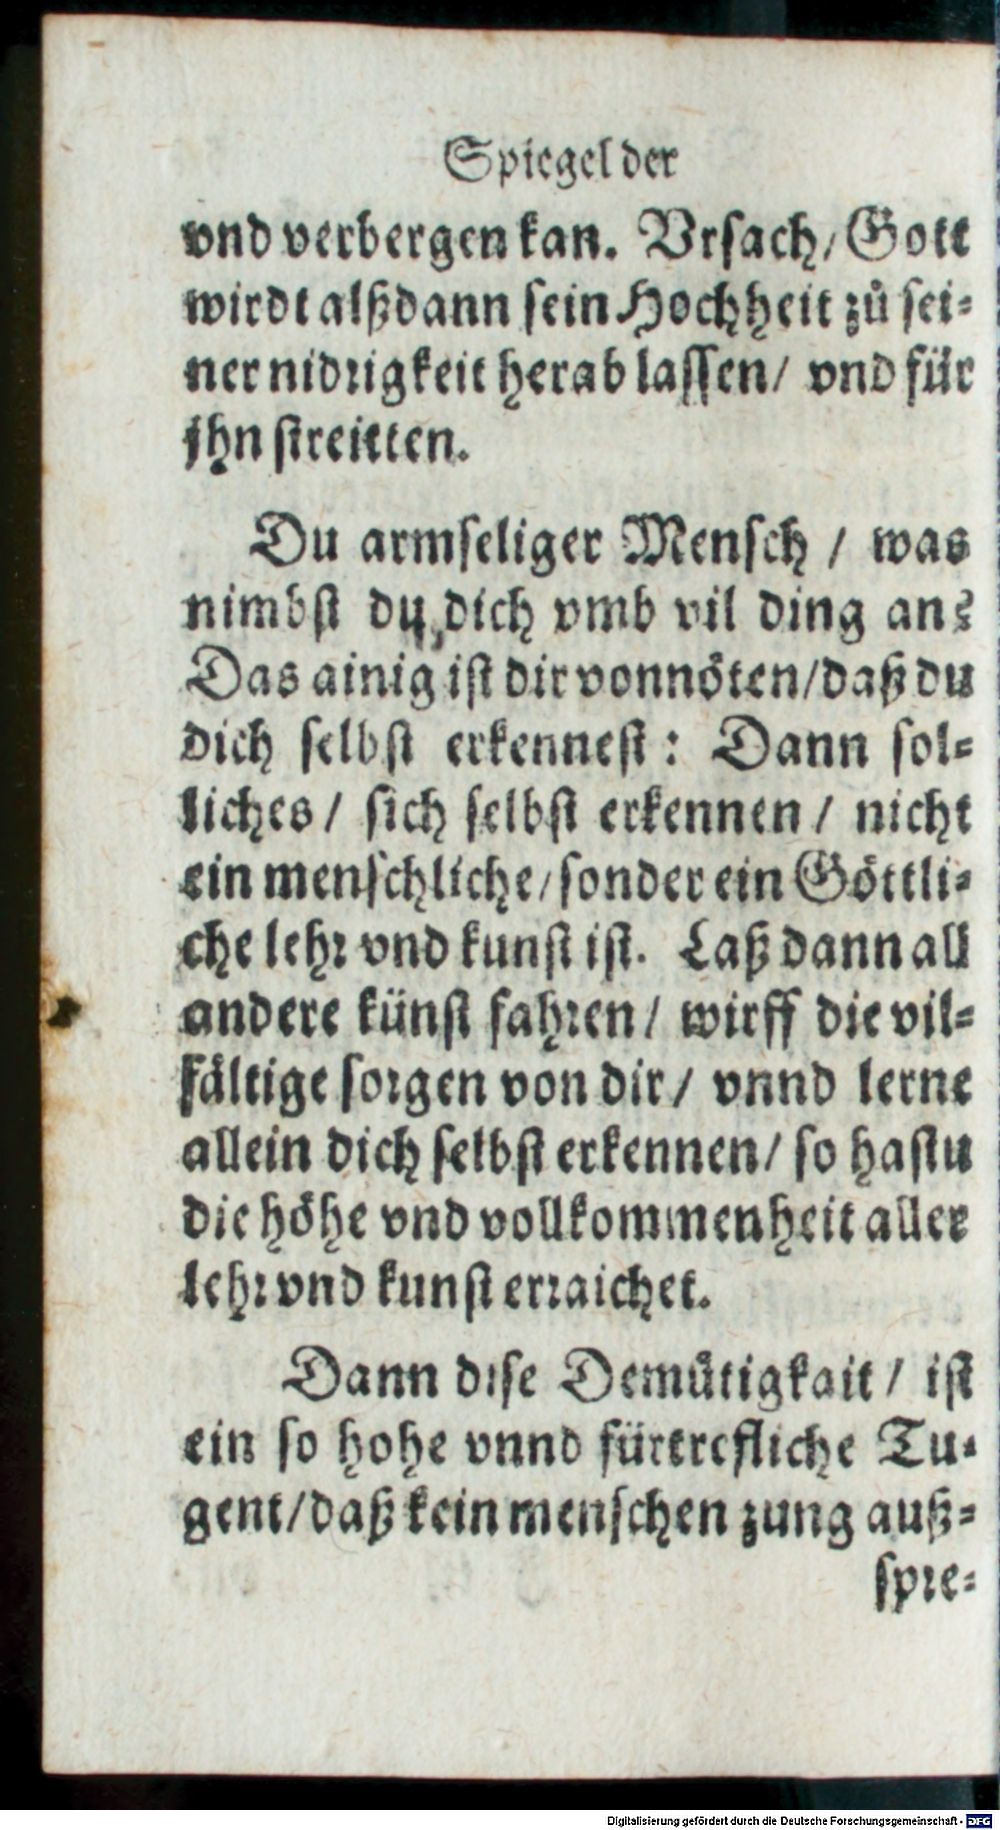 Spiegel der
vnd verbergen kan. Vrsach/ Gott
wirdt alßdann sein Hochheit zů sei-
ner nidrigkeit herab lassen/ vnd für
jhn streitten.
Du armseliger Mensch / was
nimbst du dich vmb vil ding an?
Das ainig ist dir vonnöten/daß du
dich selbst erkennest: Dann sol-
liches/ sich selbst erkennen/ nicht
ein menschliche/sonder ein Göttli-
che lehr vnd kunst ist. Laß dann all
andere künst fahren/ wirff die vil-
fältige sorgen von dir/ vnnd lerne
allein dich selbst erkennen/ so hastu
die höhe vnd vollkommenheit aller
lehr vnd kunst erraichet.
Dann dise Demütigkait/ ist
ein so hohe vnnd fürtrefliche Tu-
gent/daß kein menschen zung auß-
spre-
Digitalisierung gefördert durch die Deutsche Forschungsgemeinschaft - DFG